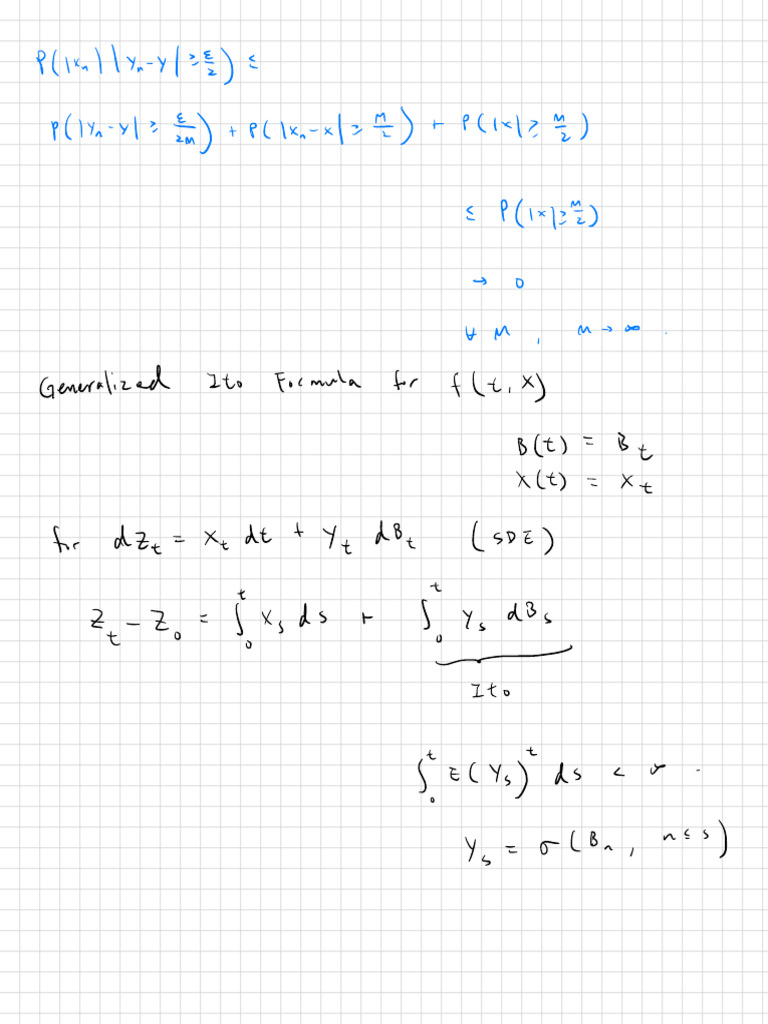 P(|Xₙ| |Yₙ-Y| ≥ ε/2) ≤
P(|Yₙ-Y| ≥ ε/2M) + P(|Xₙ-X| ≥ M/2) + P(|X| ≥ M/2)
≤ P(|X| ≥ M/2)
→ 0
∀ M , M → ∞ .
Generalized Ito Formula for f(t, X)
B(t) = B_t
X(t) = X_t
for dZ_t = X_t dt + Y_t dB_t (SDE)
Z_t - Z_0 = ∫₀ᵗ X_s ds + ∫₀ᵗ Y_s dB_s
Ito
∫₀ᵗ E(Y_s)ᵗ ds <
Y_s = σ(Bₙ, n ≤ s)